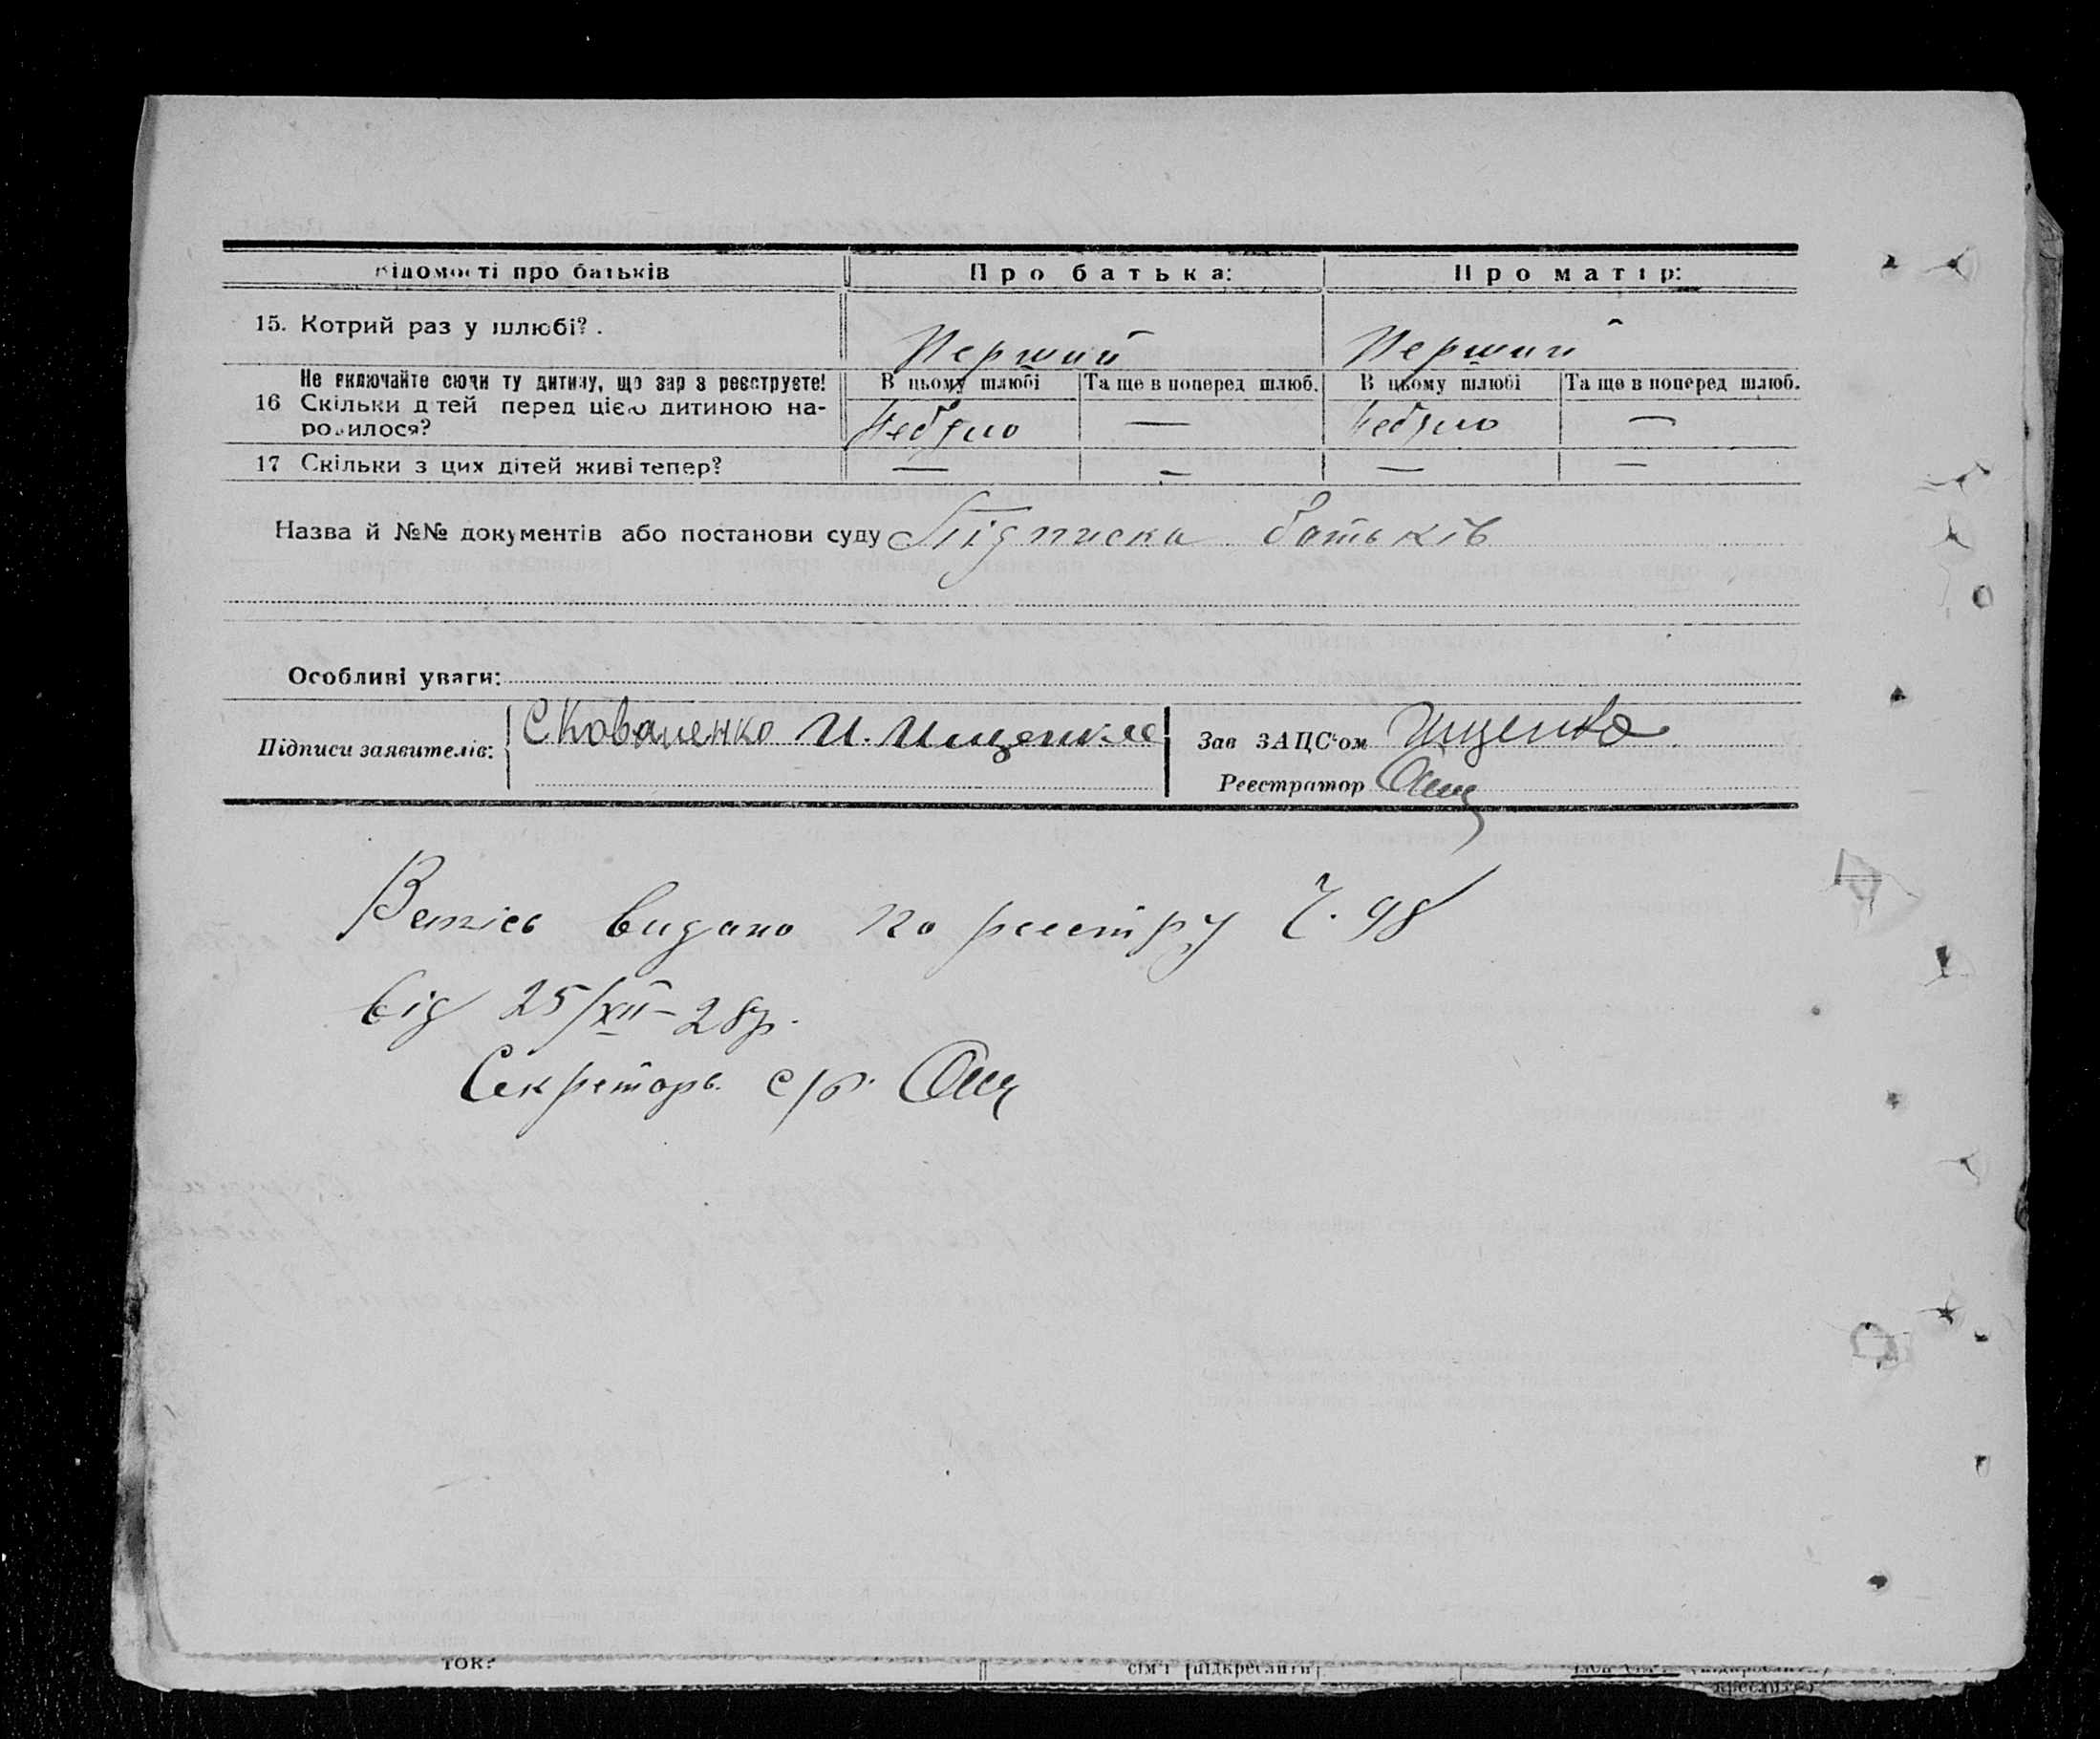 Відомості про батьків
Про батька:
Про матір:
15. Котрий раз у шлюбі?.
Перший
Перший
Не включайте сюди ту дитину, що зараз реєструєте!
В цьому шлюбі
Та ще в поперед шлюб.
В цьому шлюбі
Та ще в поперед шлюб.
16 Скільки дітей перед цією дитиною на-
родилося?
Небуло
—
Небуло
—
17 Скільки з цих дітей живі тепер?
—
—
—
—
Назва й №№ документів або постанови суду Підписка батьків
Особливі уваги:
Підписи заявителів:
С Коваленко И. Ищенко
Зав ЗАЦС'ом Ищенко
Реєстратор
Витісь видано по реєстру Ч. 98
від 25/XII–28р.
Секретарь с/р.
ток?
сім'ї (підкреслити)